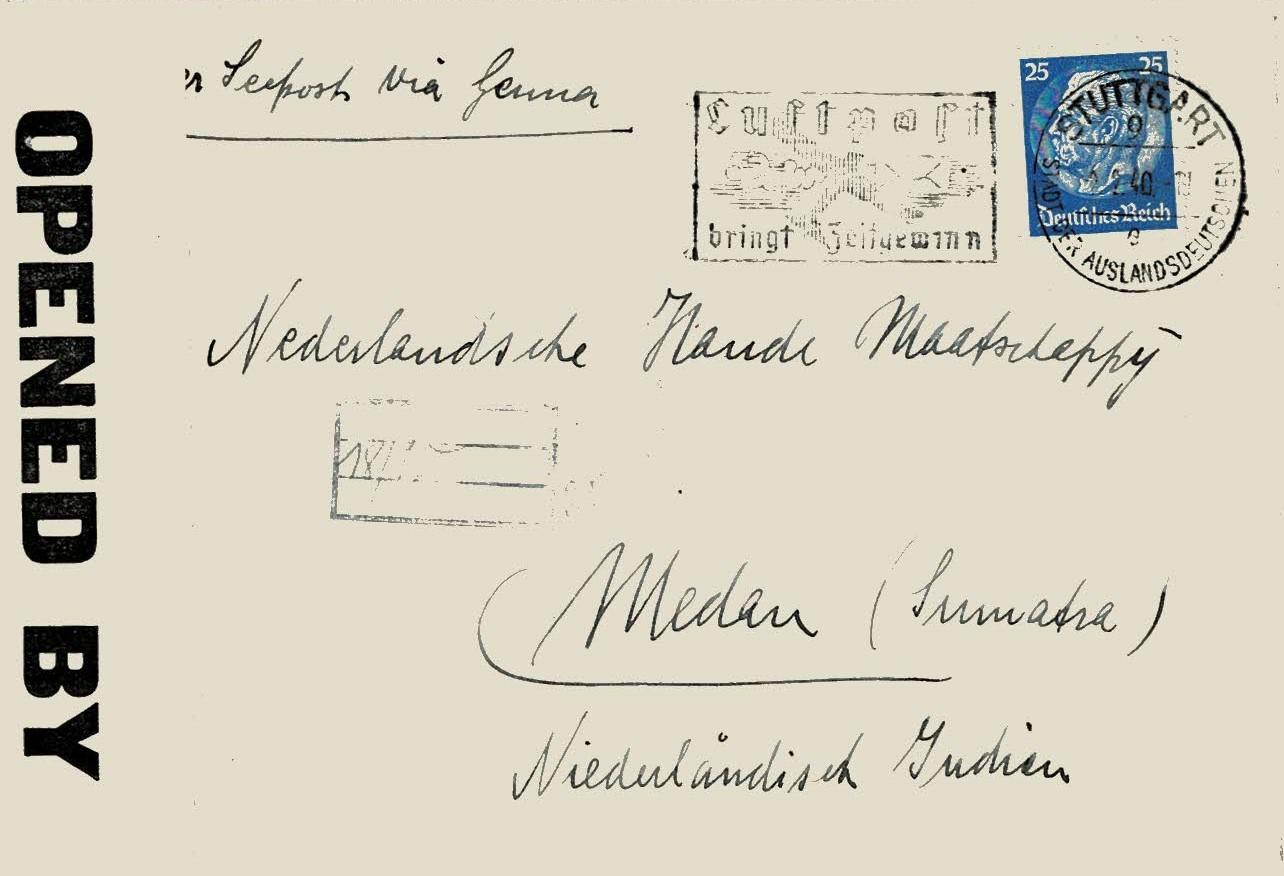 Seepost via Genua
25 25
Luftpost
bringt Zeitgewinn
STUTTGART
9
40
e
STADT DER AUSLANDSDEUTSCHEN
Deutsches Reich
Nederlandsche Hande Maatschappÿ
18/
Medan (Sumatra)
Niederländisch Indien
OPENED BY